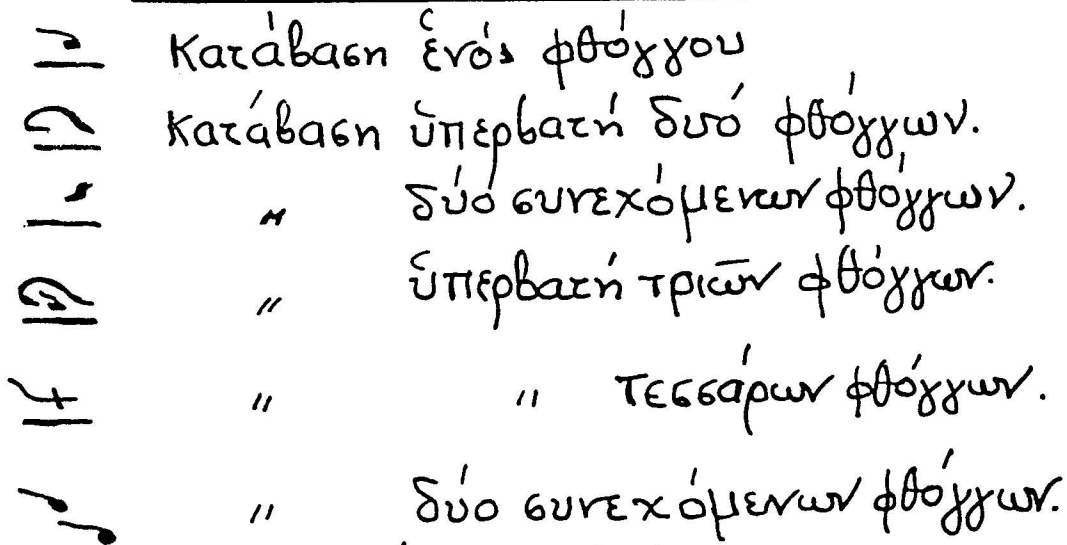 Κατάβαση ἑνός φθόγγου
Κατάβαση ὑπερβατή δυό φθόγγων.
" δύο συνεχόμενων φθόγγων.
" ὑπερβατή τριῶν φθόγγων.
" " τεσσάρων φθόγγων.
" δύο συνεχόμενων φθόγγων.